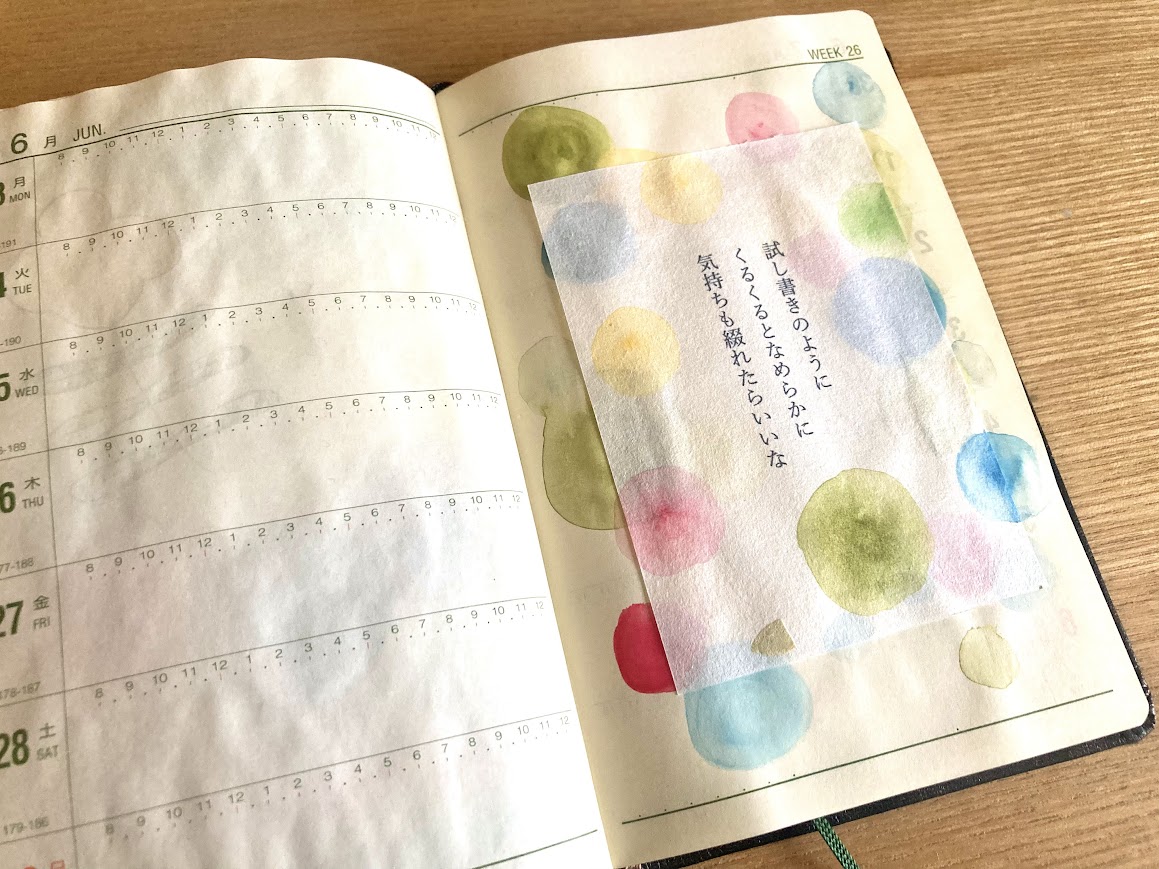 6月 JUN.
8 9 10 11 12 1 2 3 4 5 6 7 8 9 10 11 12
月
MON
-191
8 9 10 11 12 1 2 3 4 5 6 7 8 9 10 11 12
火
TUE
-190
8 9 10 11 12 1 2 3 4 5 6 7 8 9 10 11 12
水
WED
-189
8 9 10 11 12 1 2 3 4 5 6 7 8 9 10 11 12
木
THU
77-188
8 9 10 11 12 1 2 3 4 5 6 7 8 9 10 11 12
27 金
FRI
178-187
8 9 10 11 12 1 2 3 4 5 6 7 8 9 10 11 12
28 土
SAT
179-186
8 9 10 11 12 1 2 3 4 5 6 7 8 9 10 11 12
日
WEEK 26
試し書きのように
くるくるとなめらかに
気持ちも綴れたらいいな